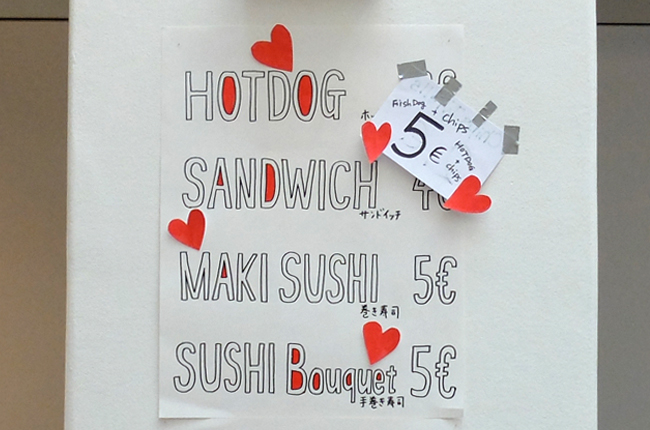 HOTDOG €
ホッ
FishDog + chips
5€
HOTDOG + chips
SANDWICH 4€
サンドイッチ
MAKI SUSHI 5€
巻き寿司
SUSHI Bouquet 5€
手巻き寿司